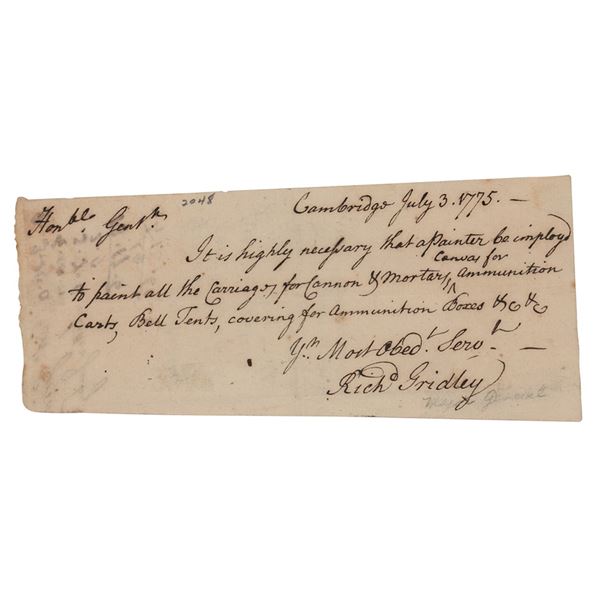 2048
Cambridge July 3. 1775. —
Honble Gentn
It is highly necessary that a Painter be imployd
to paint all the Carriages, for Cannon & Mortars, ^ Canvas for Ammunition
Carts, Bell Tents, covering for Ammunition Boxes &c &c
Yrr Most Obedt. Servt. —
Richd Gridley
Major General